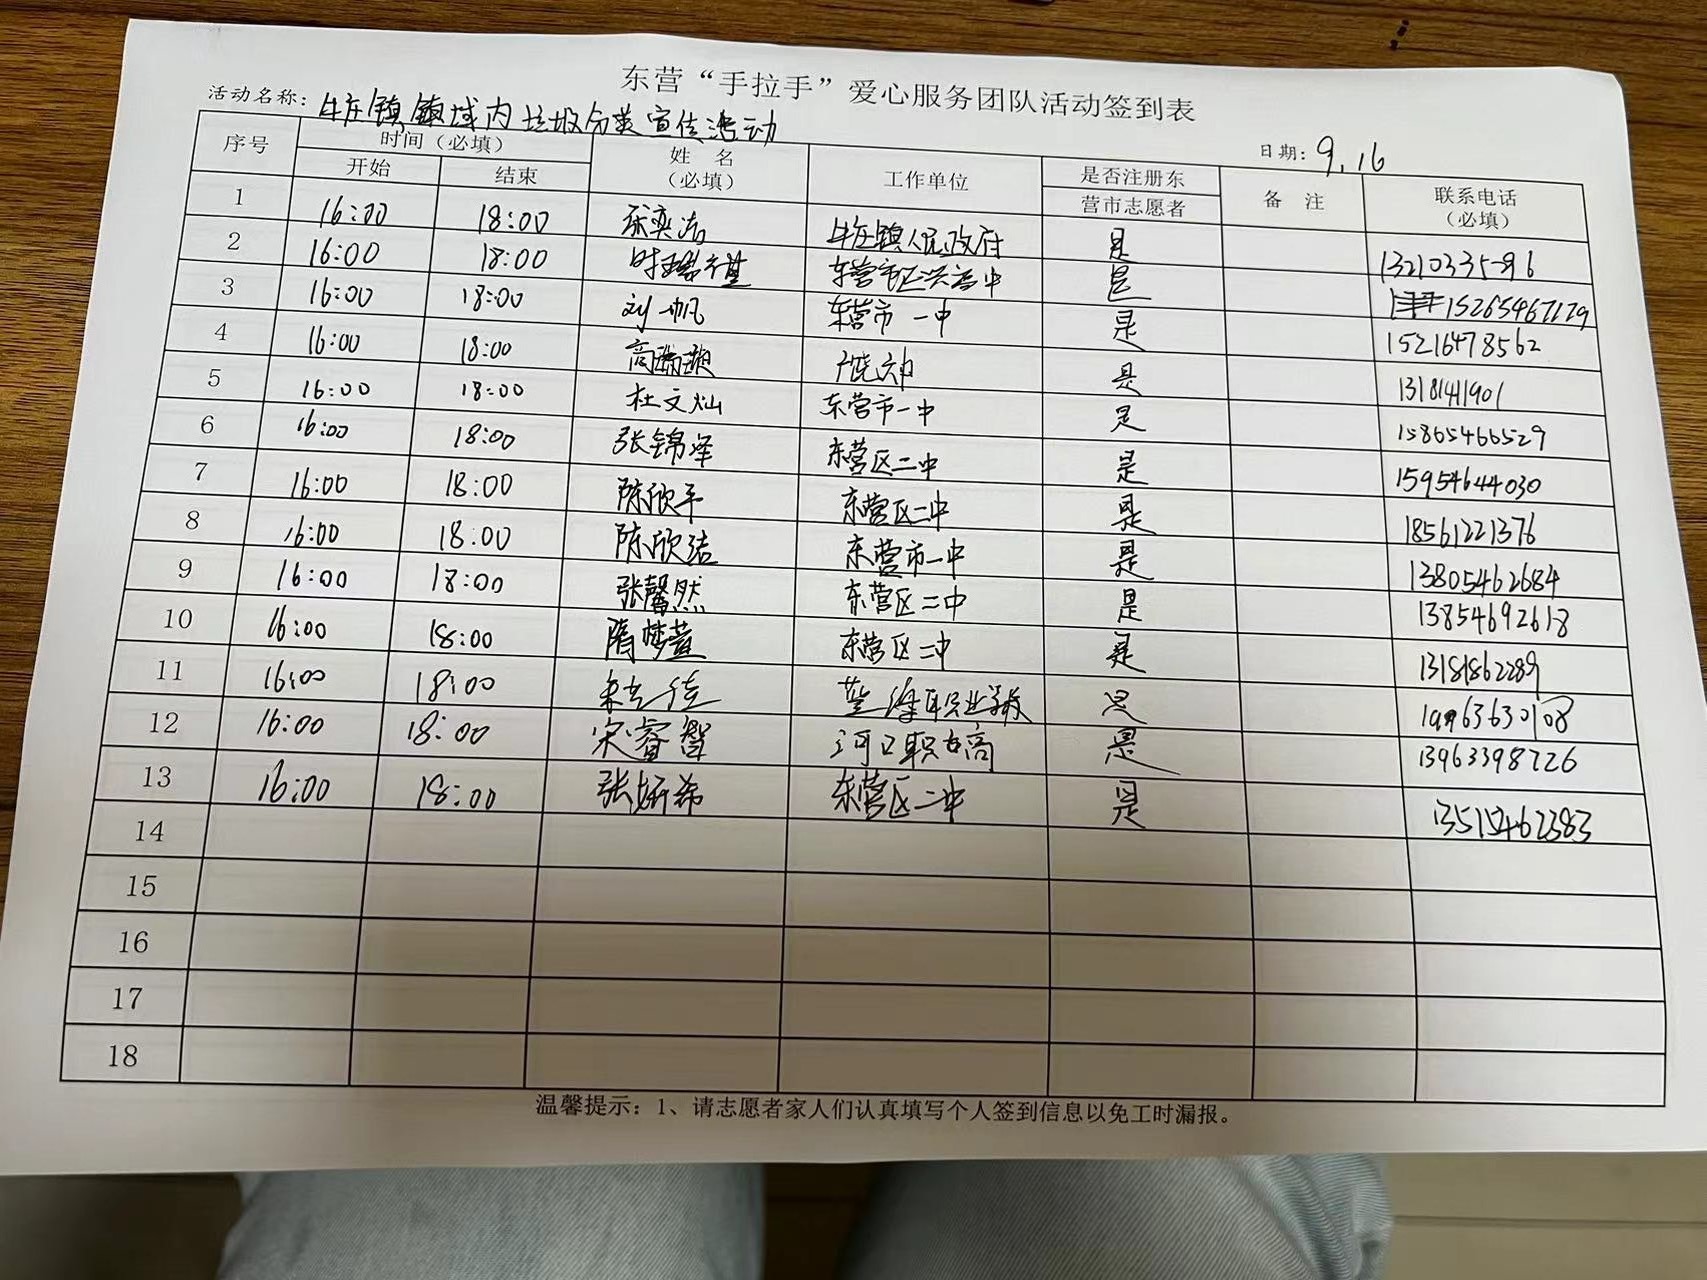 东营“手拉手”爱心服务团队活动签到表
活动名称: 牛庄镇镇域内垃圾分类宣传活动
日期: 9.16
序号 时间（必填） 姓 名（必填） 工作单位 是否注册东营市志愿者 备 注 联系电话（必填）
开始 结束
1 16:00 18:00 牛庄镇人民政府 是
2 16:00 18:00 是 15265467179
3 16:00 18:00 刘一帆 东营市一中 是 15216478562
4 16:00 18:00 是 1318141901
5 16:00 18:00 杜文灿 东营市一中 是 15865466529
6 16:00 18:00 张锦泽 东营区二中 是 15954644030
7 16:00 18:00 陈欣平 东营区二中 是 18561221376
8 16:00 18:00 陈欣洁 东营市一中 是 13805462684
9 16:00 18:00 张馨然 东营区二中 是 13854692618
10 16:00 18:00 隋梦萱 东营区二中 是 13181862289
11 16:00 18:00 是
12 16:00 18:00 宋睿智 是 13963398726
13 16:00 18:00 张妍希 东营区二中 是
14
15
16
17
18
温馨提示：1、请志愿者家人们认真填写个人签到信息以免工时漏报。